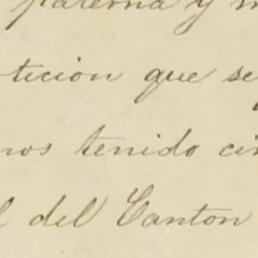 paterna y
ticion que se
nos tenido
l del Canton